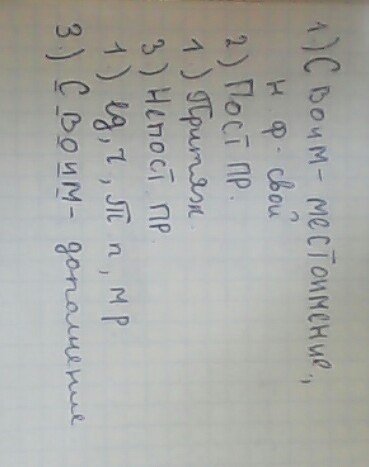 1.) Своим - местоимение,
н.ф. свой
2) Пост пр.
1.) Притяж.
3) Непост пр.
1.) ед, ч, Т п, м р
3.) Своим - дополнение